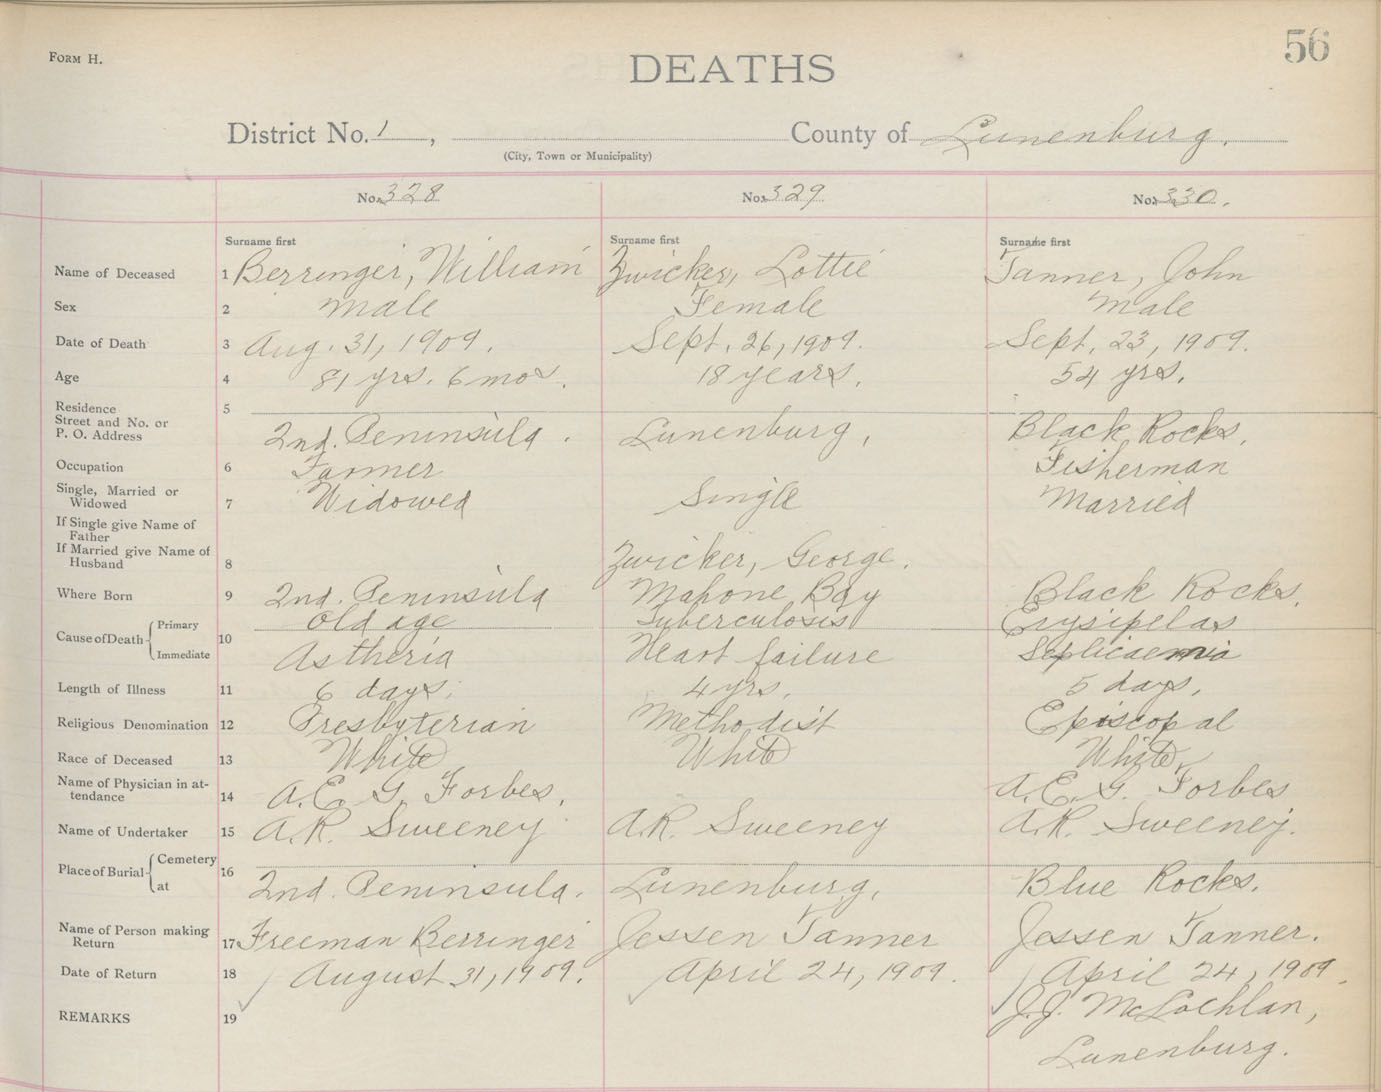 FORM H.
56
DEATHS
District No. 1, County of Lunenburg.
(City, Town or Municipality)
No. 328 No. 329 No. 330.
Surname first Surname first Surname first
Name of Deceased 1 Berringer, William Zwicker, Lottie Tanner, John
Sex 2 Male Female Male
Date of Death 3 Aug. 31, 1909. Sept. 26, 1909. Sept. 23, 1909.
Age 4 81 yrs. 6 mos. 18 years. 54 yrs.
Residence 5
Street and No. or
P. O. Address 2nd. Peninsula. Lunenburg, Black Rocks.
Occupation 6 Farmer Fisherman
Single, Married or
Widowed 7 Widowed Single Married
If Single give Name of
Father
If Married give Name of
Husband 8 Zwicker, George.
Where Born 9 2nd. Peninsula Mahone Bay Black Rocks.
Cause of Death Primary 10 Old age Tuberculosis Erysipelas
Immediate Asthenia Heart failure Septicaemia
Length of Illness 11 6 days. 4 yrs. 5 days.
Religious Denomination 12 Presbyterian Methodist Episcopal
Race of Deceased 13 White White White
Name of Physician in at-
tendance 14 A. E. G. Forbes. A. E. G. Forbes
Name of Undertaker 15 A.R. Sweeney A.R. Sweeney A.R. Sweeney.
Place of Burial Cemetery 16
at 2nd. Peninsula. Lunenburg. Blue Rocks.
Name of Person making
Return 17 Freeman Berringer Jessen Tanner Jessen Tanner.
Date of Return 18 August 31, 1909. April 24, 1909. April 24, 1909.
REMARKS 19 J.J. McLachlan,
Lunenburg.